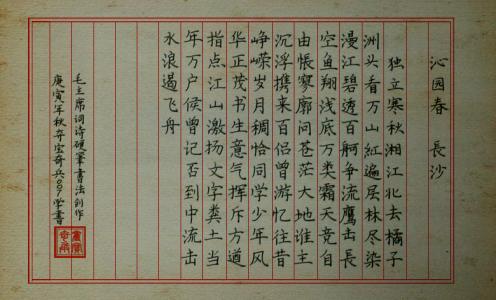 沁园春 長沙
独立寒秋湘江北去橘子
洲头看万山紅遍层林尽染
漫江碧透百舸争流鹰击長
空鱼翔浅底万类霜天竞自
由怅寥廓问苍茫大地谁主
沉浮携来百侣曾游忆往昔
峥嵘岁月稠恰同学少年风
华正茂书生意气挥斥方遒
指点江山激扬文字粪土当
年万户侯曾记否到中流击
水浪遏飞舟
毛主席词诗硬筆書法创作
庚寅年秋弃宝奇兵009学書